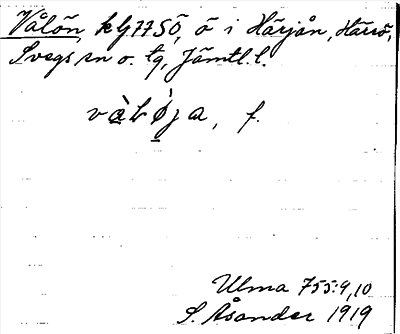 Vålön, kg 7750, ö i Härjån, Härrö,
Svegs sn o. tg, Jämtl. l.
vàbø̀ja, f.
Ulma 755:9,10
S. Åsander 1919